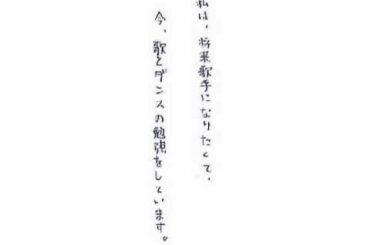 私は、将来歌手になりたくて、
今、歌とダンスの勉強をしています。